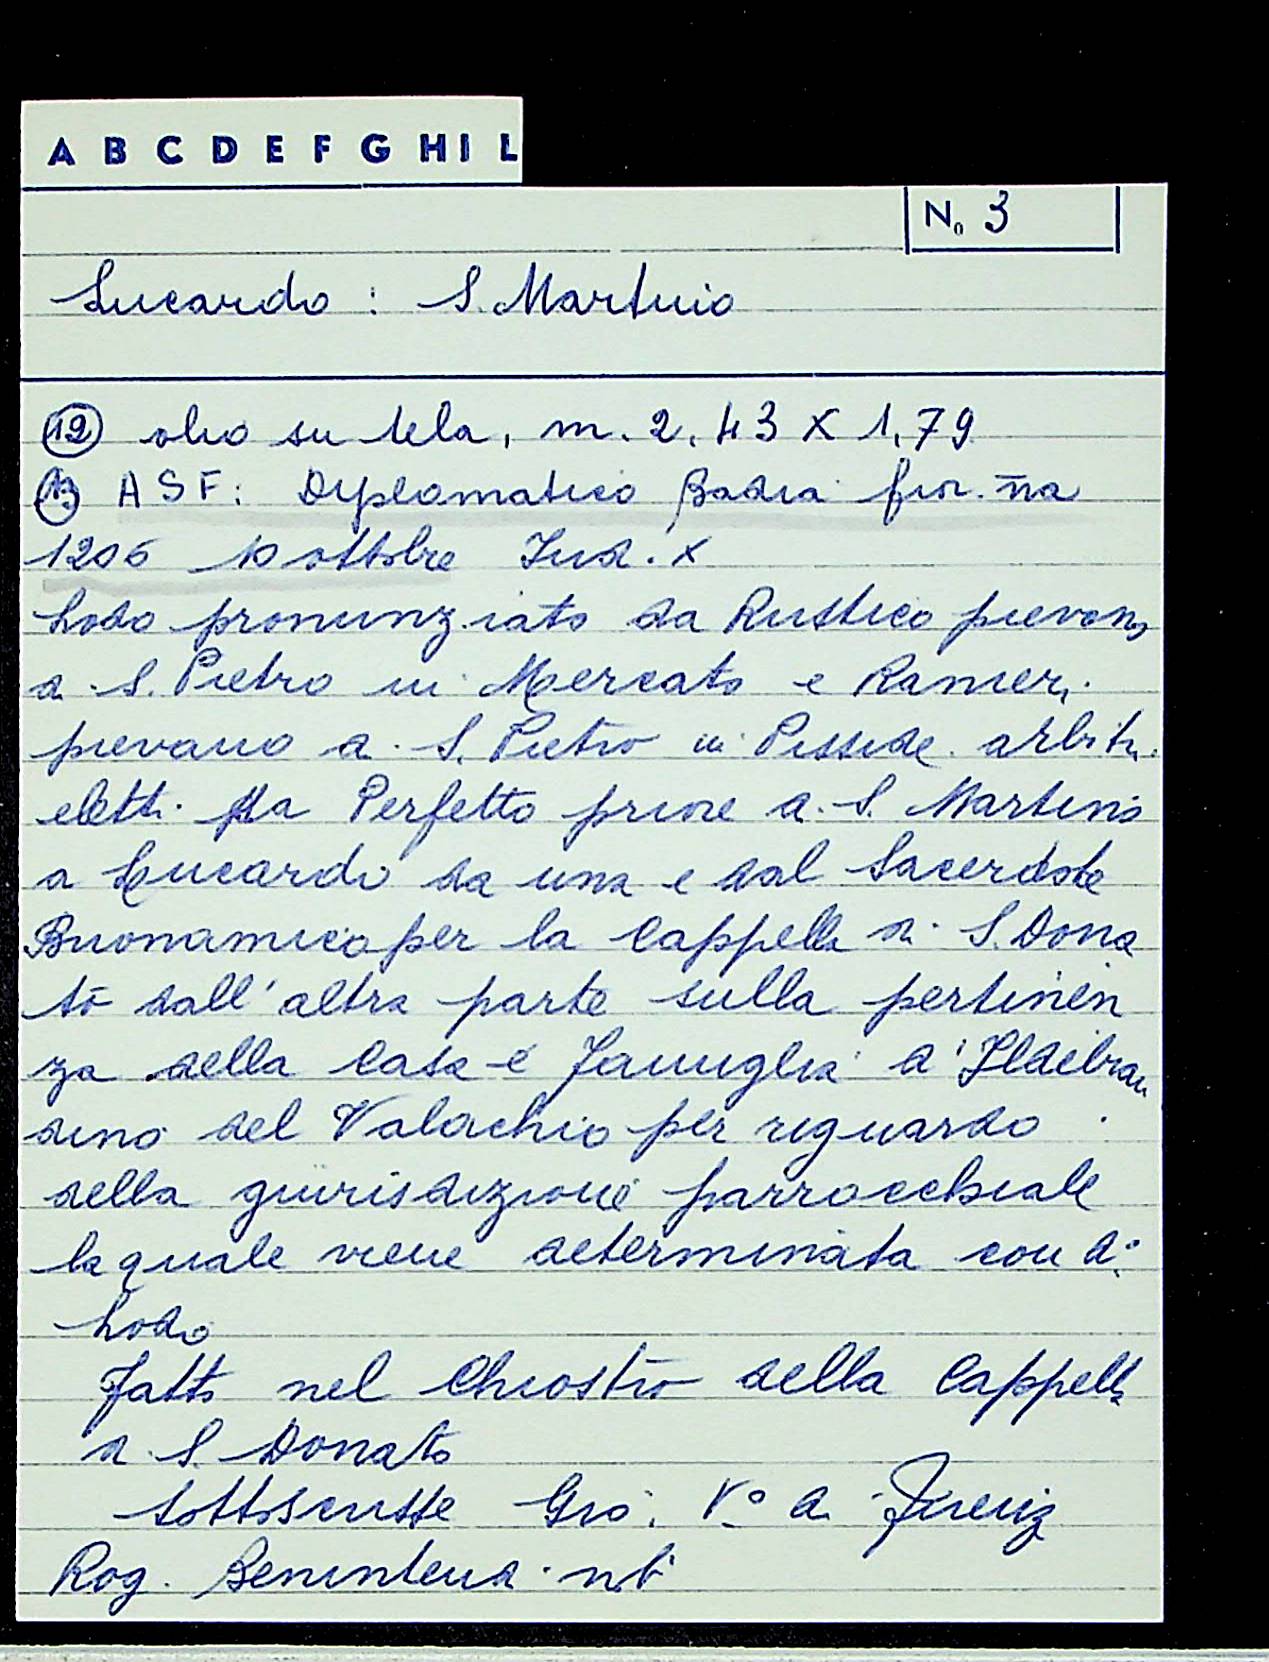 A B C D E F G H I L
N. 3
Lucardo : S. Martino
12 olio su tela, m. 2,43 X 1,79
13 ASF: Diplomatico Badia fior.na
1206 10 ottobre Ind. X
Lodo pronunziato da Rustico pievano
di S. Pietro in Mercato e Ranieri
pievano di S. Pietro in Pisside arbitri
eletti da Perfetto priore di S. Martino
a Lucardo da una e dal Sacerdote
Buonamico per la Cappella di S. Dona
to dall'altra parte sulla pertinen
za della Casa e famiglia d'Ildebran
dino del Valachio per riguardo
della giurisdizione parrocchiale
la quale viene determinata con d.°
Lodo
Fatto nel Chiostro della Cappella
di S. Donato
Sottoscritte Gio. V° di Firenz
Rog. Benintendi